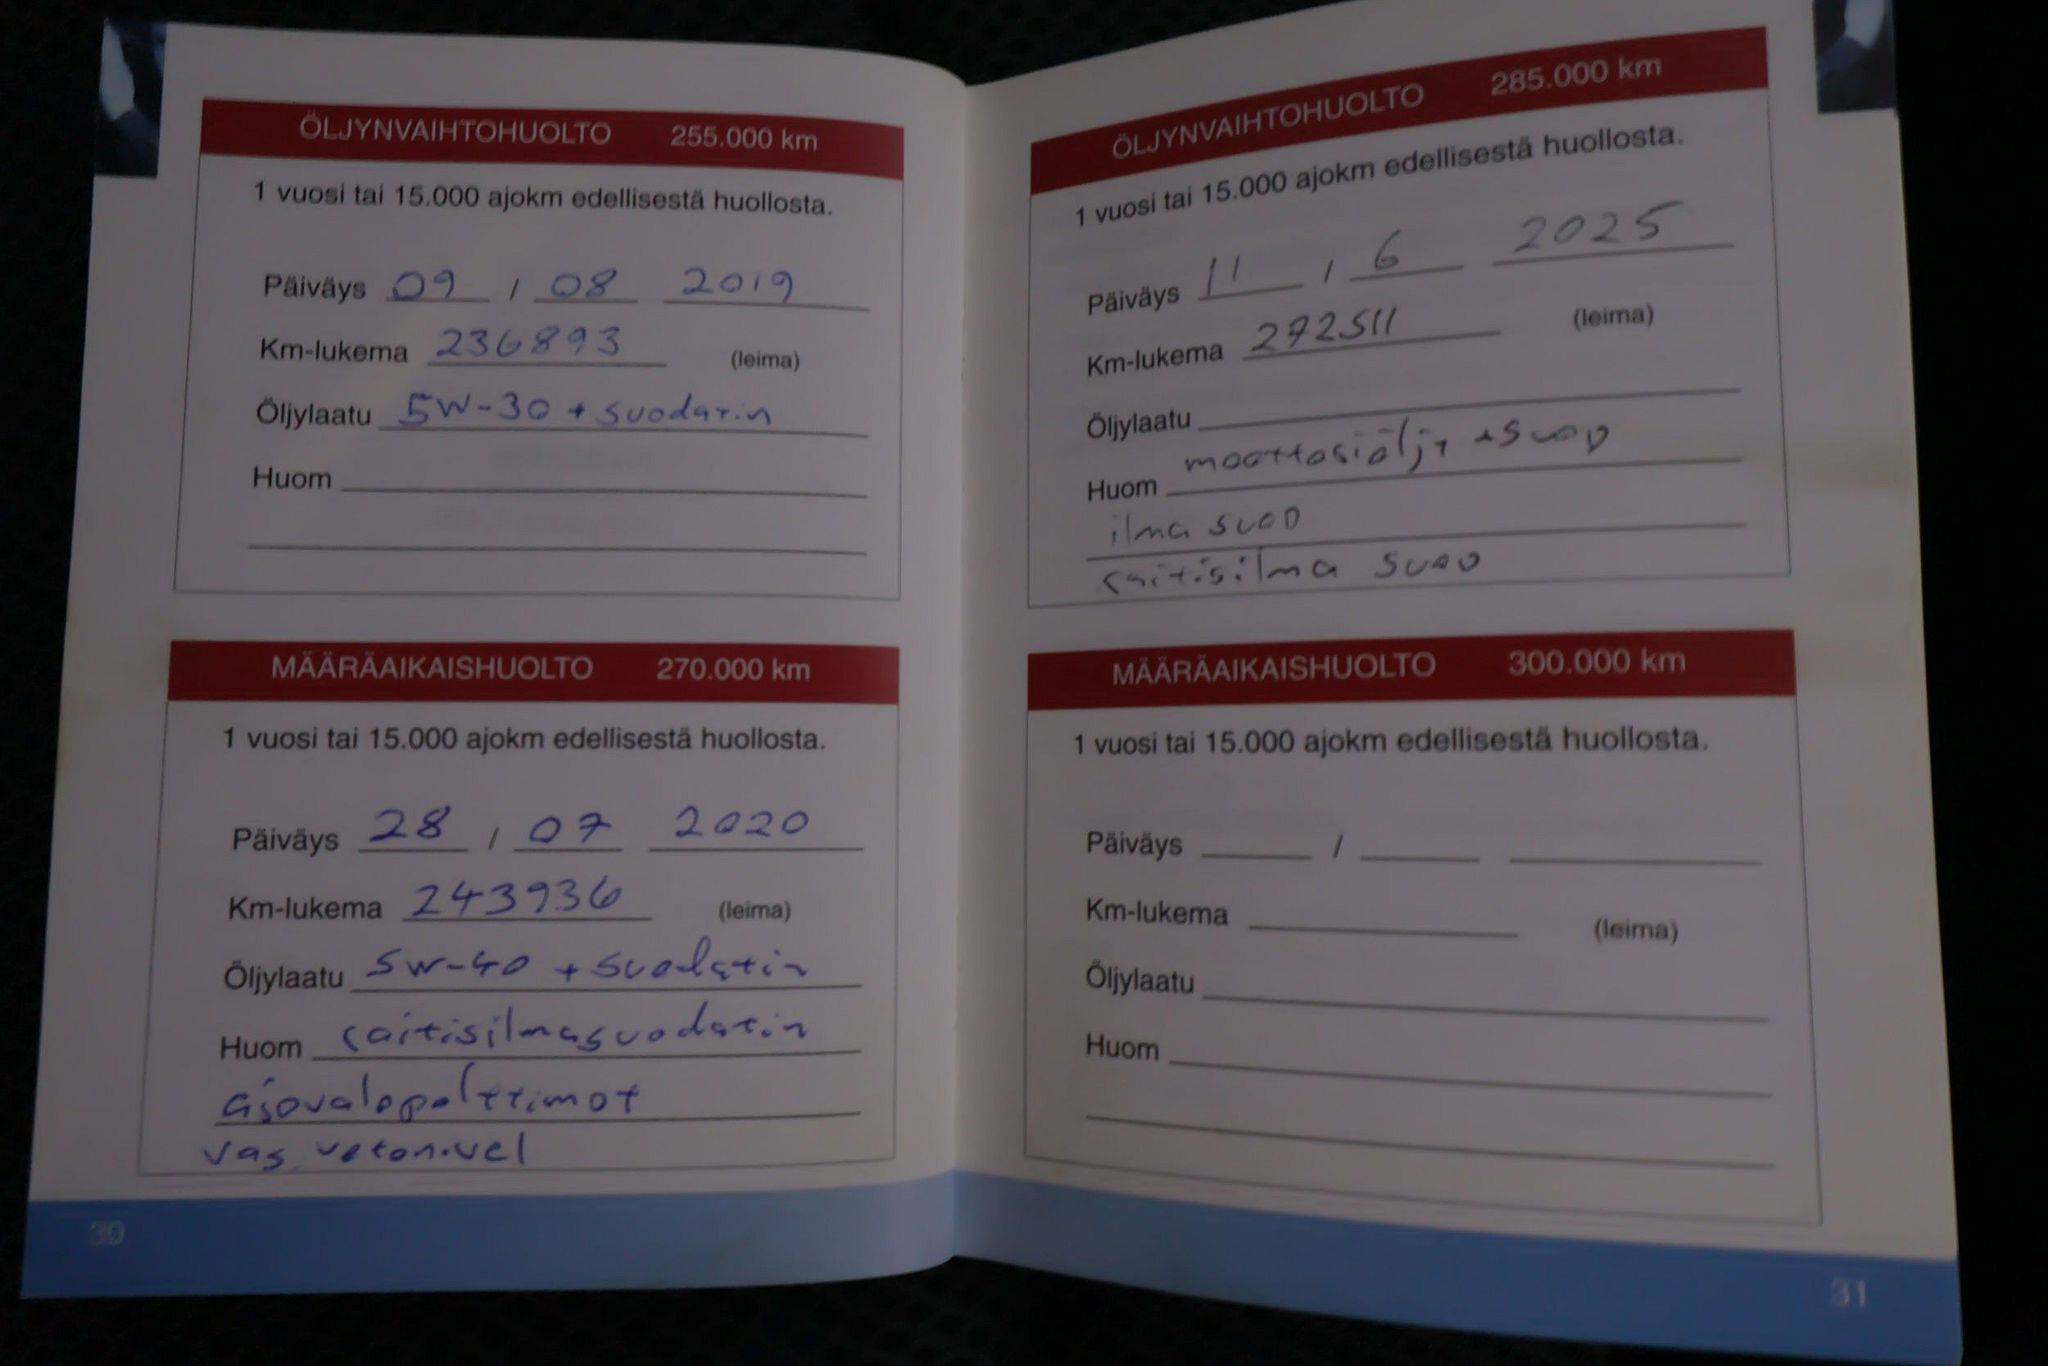 ÖLJYNVAIHTOHUOLTO 255.000 km
1 vuosi tai 15.000 ajokm edellisestä huollosta.
Päiväys 09 / 08 2019
Km-lukema 236893 (leima)
Öljylaatu 5W-30 + suodatin
Huom
MÄÄRÄAIKAISHUOLTO 270.000 km
1 vuosi tai 15.000 ajokm edellisestä huollosta.
Päiväys 28 / 07 2020
Km-lukema 243936 (leima)
Öljylaatu 5W-40 + suodatin
Huom raitisilmasuodatin
ajovalopolttimot
vas vetonivel
30
ÖLJYNVAIHTOHUOLTO 285.000 km
1 vuosi tai 15.000 ajokm edellisestä huollosta.
Päiväys 11 / 6 2025
Km-lukema 272511 (leima)
Öljylaatu
Huom moottoriöljy + suoD
ilma suoD
raitisilma suoD
MÄÄRÄAIKAISHUOLTO 300.000 km
1 vuosi tai 15.000 ajokm edellisestä huollosta.
Päiväys /
Km-lukema (leima)
Öljylaatu
Huom
31